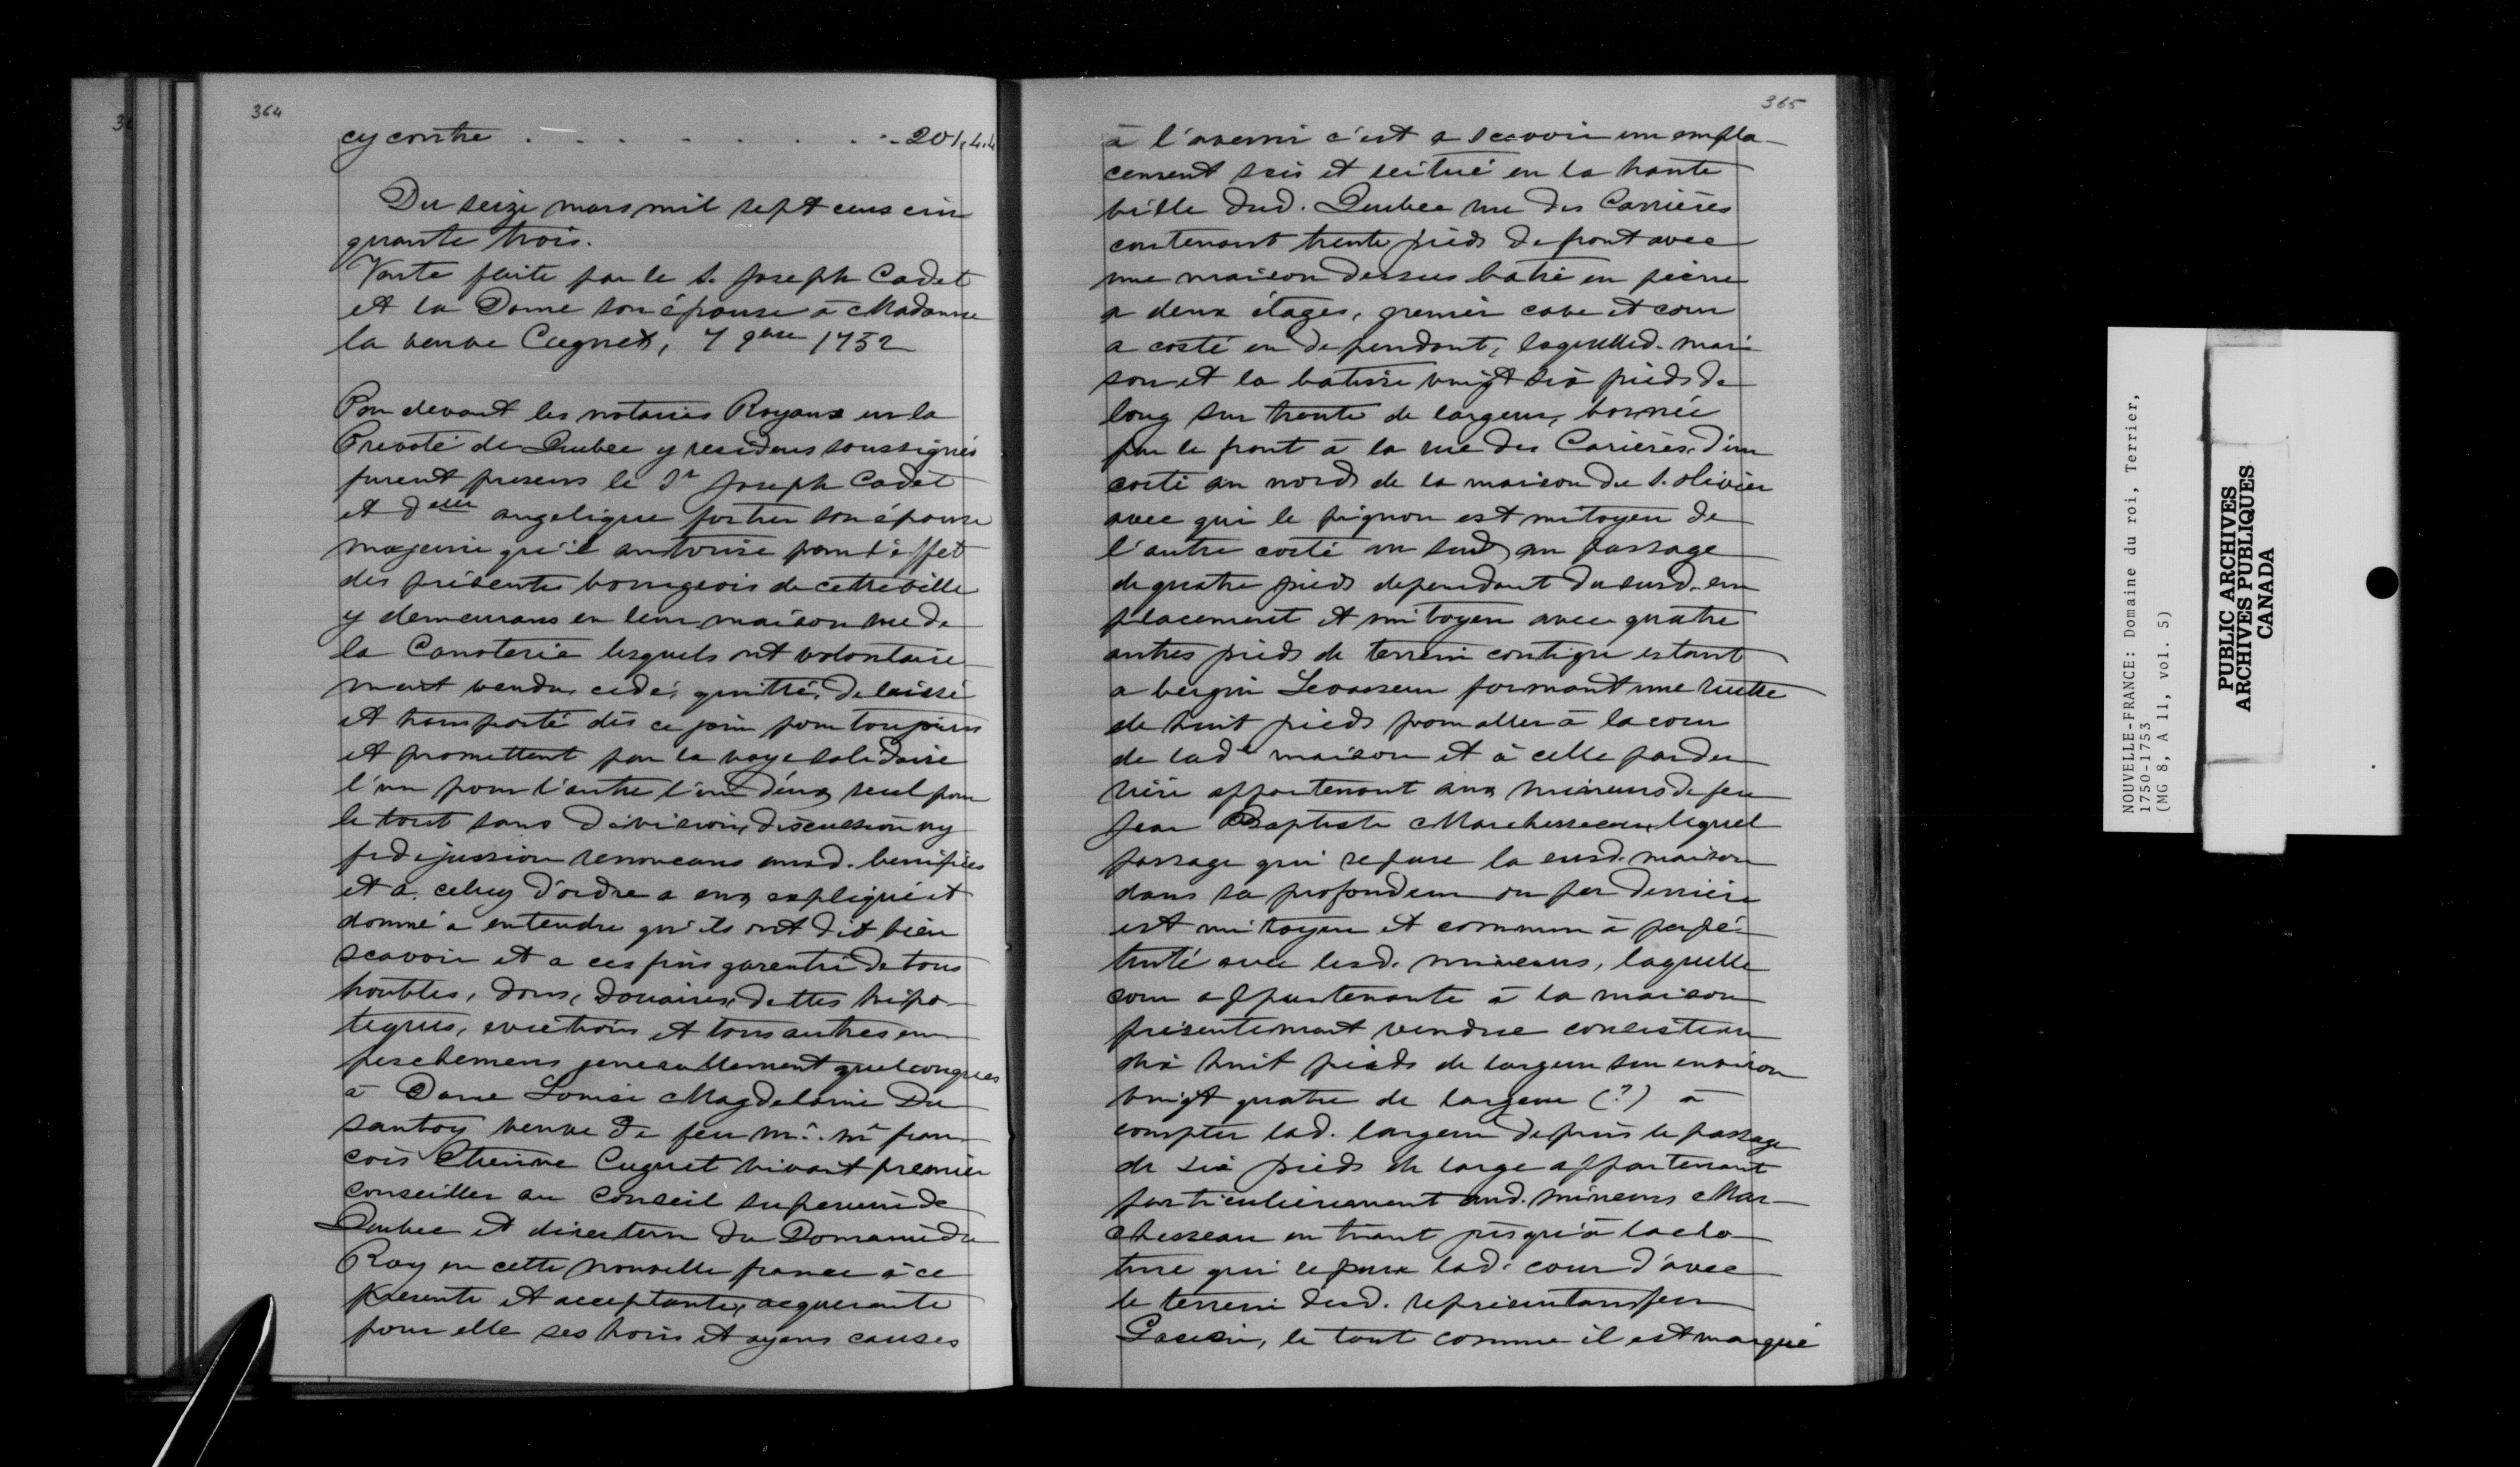 364
cy contre . . . . . . . . 201.4.4
Du seize mars mil sept cens cin
quante trois.
Vente faite par le S. Joseph Cadet
et la Dame son épouse à Madame
la veuve Cugnet, 7 9bre 1752
Par devant les notaires Royaux en la
Prevoté de Quebec y residens soussignés
furent presens le Sr Joseph Cadet
et delle angelique fortier son épouse
majeure qu'il autorise pour l'effet
des présentes bourgeois de cette ville
y demeurans en leur maison rue de
la Canoterie lesquels ont volontaire
ment vendu, cedé, quitté, delaissé
et transporté dès ce jour pour toujours
et promettent par la voye solidaire
l'un pour l'autre l'un d'eux seul pour
le tout sans division, discussion ny
fidejussion renonceans ausd. benefices
et a celuy d'ordre a eux expliqué et
donné a entendre qu'ils ont dit bien
scavoir et a ces fins garentir de tous
troubles, dons, douaires, dettes hipo-
teques, evictions et tous autres em
peschemens generallement quelconques
à Dame Louise Magdelaine Du
santoy veuve de feu Me. Me fran
cois Etienne Cugnet vivant premier
conseiller au Conseil superieur de
Quebec et directeur du Domaine du
Roy en cette nouvelle france à ce
presente et acceptante, acquerante
pour elle ses hoirs et ayans causes
365
à l'avenir c'est a scavoir un empla-
cement scis et scitué en la haute
ville dud. Quebec rue des Carrières
contenant trente pieds de front avec
une maison dessus batie en pierre
a deux étages, grenier cave et cour
a costé en dependant, laquelled. mai
son et la batisse vingt six pieds de
long sur trente de largeur, bornée
par le front à la rue des Carieres, d'un
costé au nord de la maison du S. olivier
avec qui le pignon est mitoyen de
l'autre costé au sud au passage
de quatre pieds dependant du susd. em
placement et mitoyen avec quatre
autres pieds de terrein contigu estant
a bergin Levasseur formant une ruelle
de huit pieds pour aller à la cour
de lade maison et à celle par der
riere appartenant aux mineurs de feu
Jean Baptiste Marchesseau, lequel
passage qui separe la susd. maison
dans sa profondeur ou par derriere
est mitoyen et commun à perpé-
tuité avec lesd. mineurs, laquelle
cour appartenante à la maison
présentement vendue consiste en
dix huit pieds de largeur sur environ
vingt quatre de largeur (?) a
compter lad. largeur depuis le passage
de six pieds de large appartenant
particulierement aud. mineurs Mar-
chesseau en tirant jusqu'à la clo-
ture qui separe lad. cour d'avec
le terrein desd. representans feu
le tout comme il est marqué
NOUVELLE-FRANCE: Domaine du roi, Terrier,
1750-1753
(MG 8, A 11, vol. 5)
PUBLIC ARCHIVES
ARCHIVES PUBLIQUES
CANADA